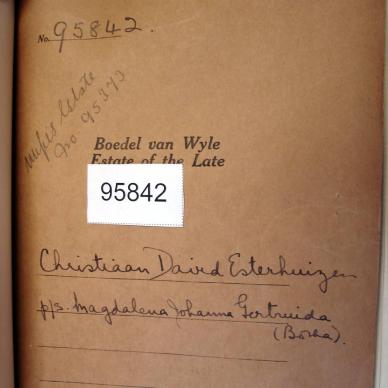 No. 95842.
wife's Estate
No 95373
Boedel van Wyle
Estate of the Late
95842
Christiaan David Esterhuizen
p/s. Magdalena Johanna Gertruida
(Botha).